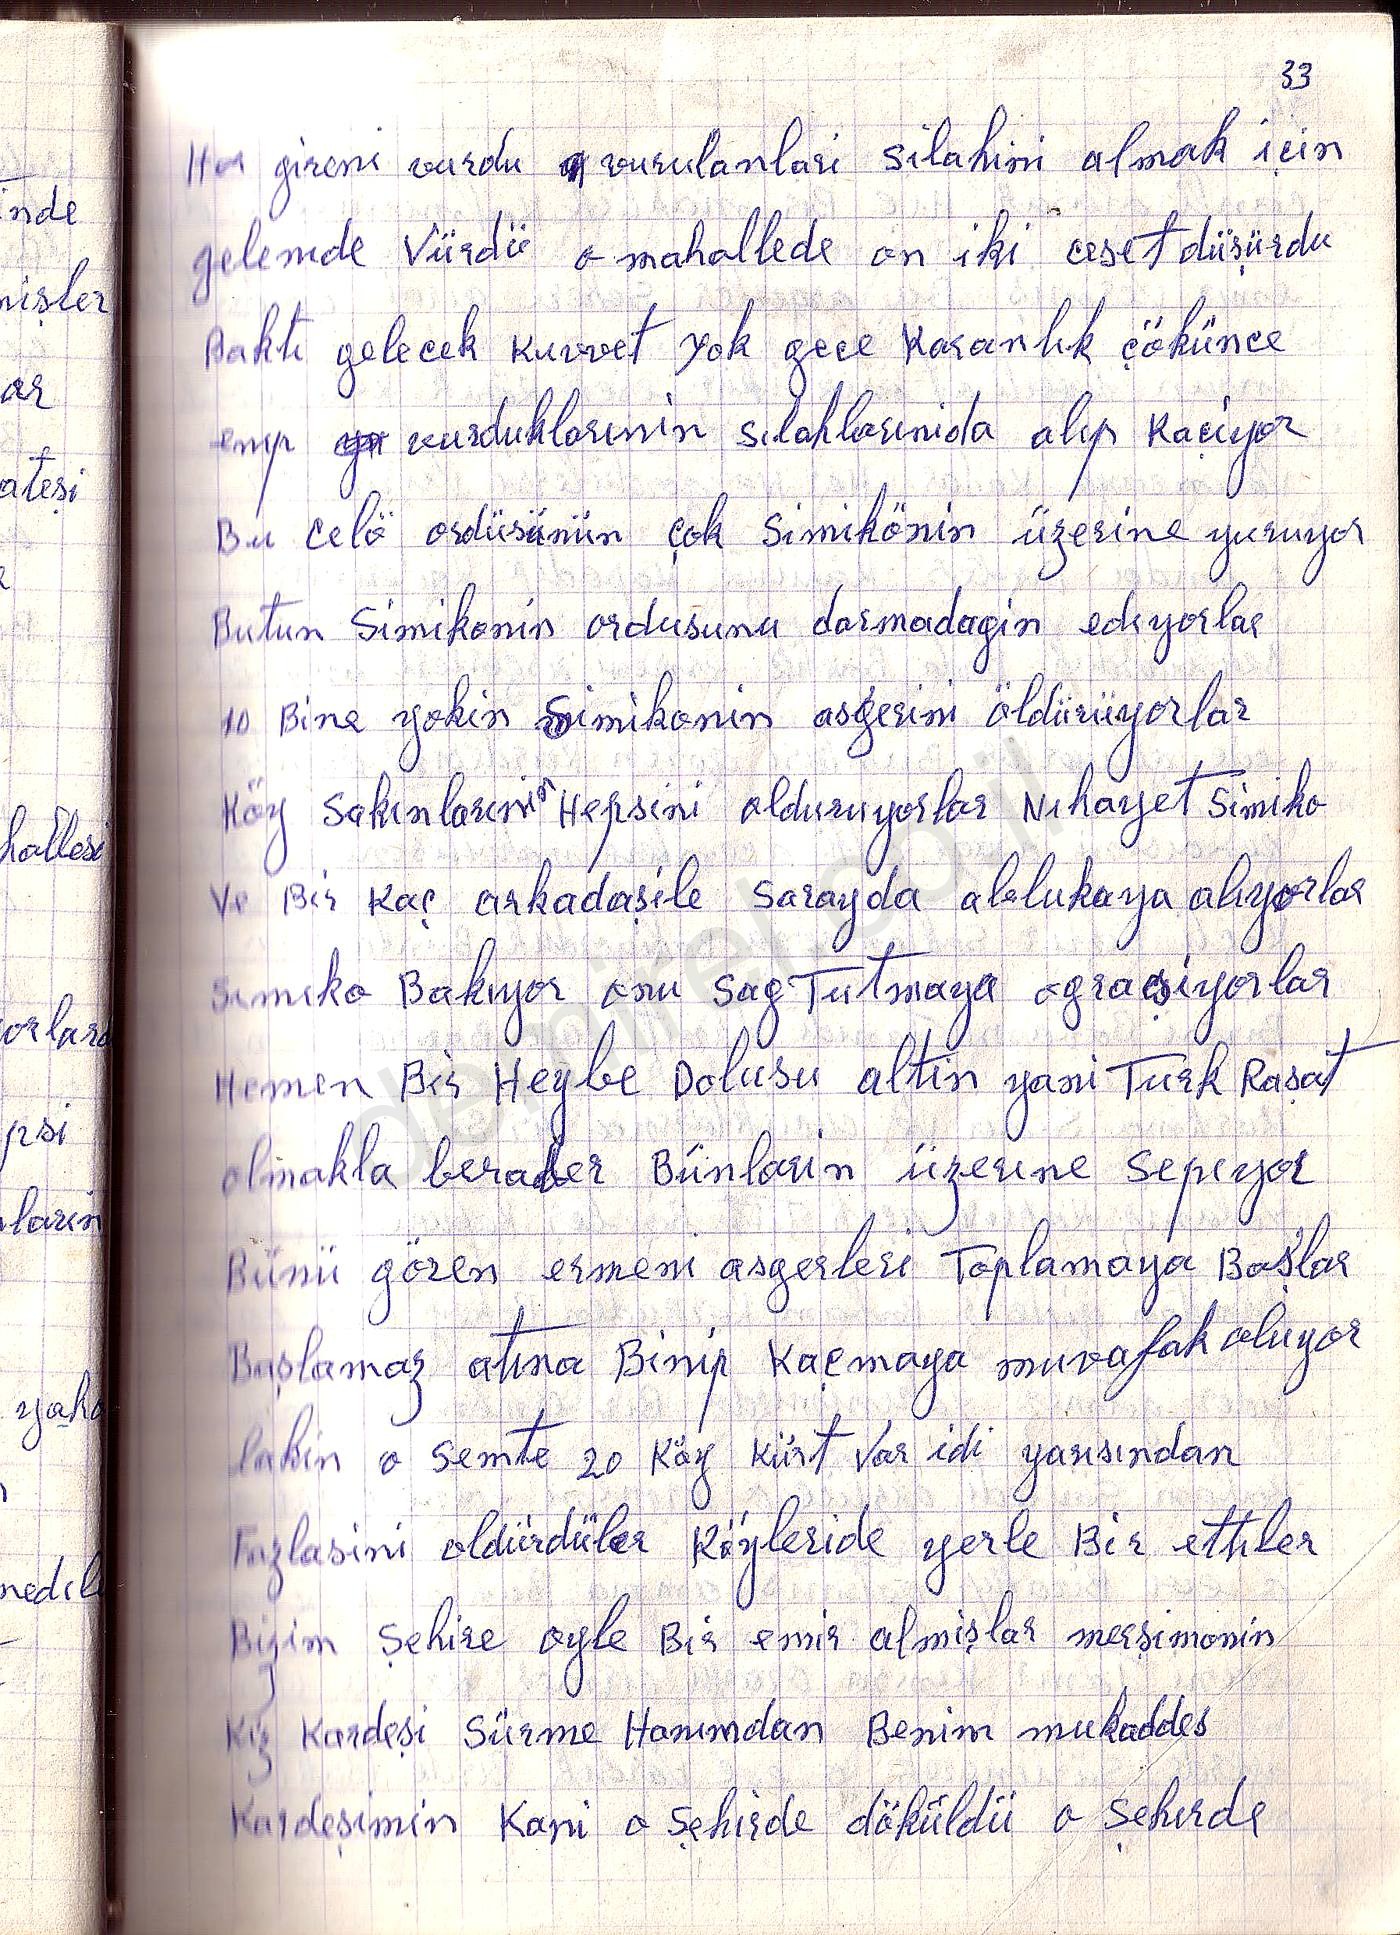 33
inde
Her gireni vurdu vurulanlari silahini almak için
gelenide Vürdü o mahallede on iki ceset düşürdu
nişler
Baktı gelecek kuvvet yok gece Karanlık çökünce
ar
enip vurduklarının sılahlarınıda alıp Kaçıyor
ateşi
Bu Celö ordüsünün çok Simikönin üzerine yuruyor
Butun Simikonin ordusunu darmadagin edıyorlar
10 Bine yakin Simikonin asgerini öldürüyorlar
Köy Sakınlarının Hepsini olduruyorlar Nıhayet Simiko
hallesi
Ve Bir Kaç arkadaşile Sarayda ablukaya alıyorlar
Simiko Bakıyor onu Sag Tutmaya ograşiyorlar
orlard
Hemen Bir Heybe Dolusu altin yani Turk Raşat
psi
olmakla beraber Bünlarin üzerıne Sepıyor
ların
Bünü gören ermeni asgerleri Toplamaya Başlar
Başlamaz atına Binip Kaçmaya muvafak oluyor
yaka
lakin o Semte 20 Köy Kürt Var idi yarısından
Fazlasini oldürdüler Köyleride yerle Bir ettıler
nedıl
Bizim Şehire oyle Bir emir almişlar merşimonin
Kız Kardeşi Sürme Hanımdan Benim mukaddes
Kardeşimin Kani o Şehirde döküldü o Şehırde
demirel.co.il